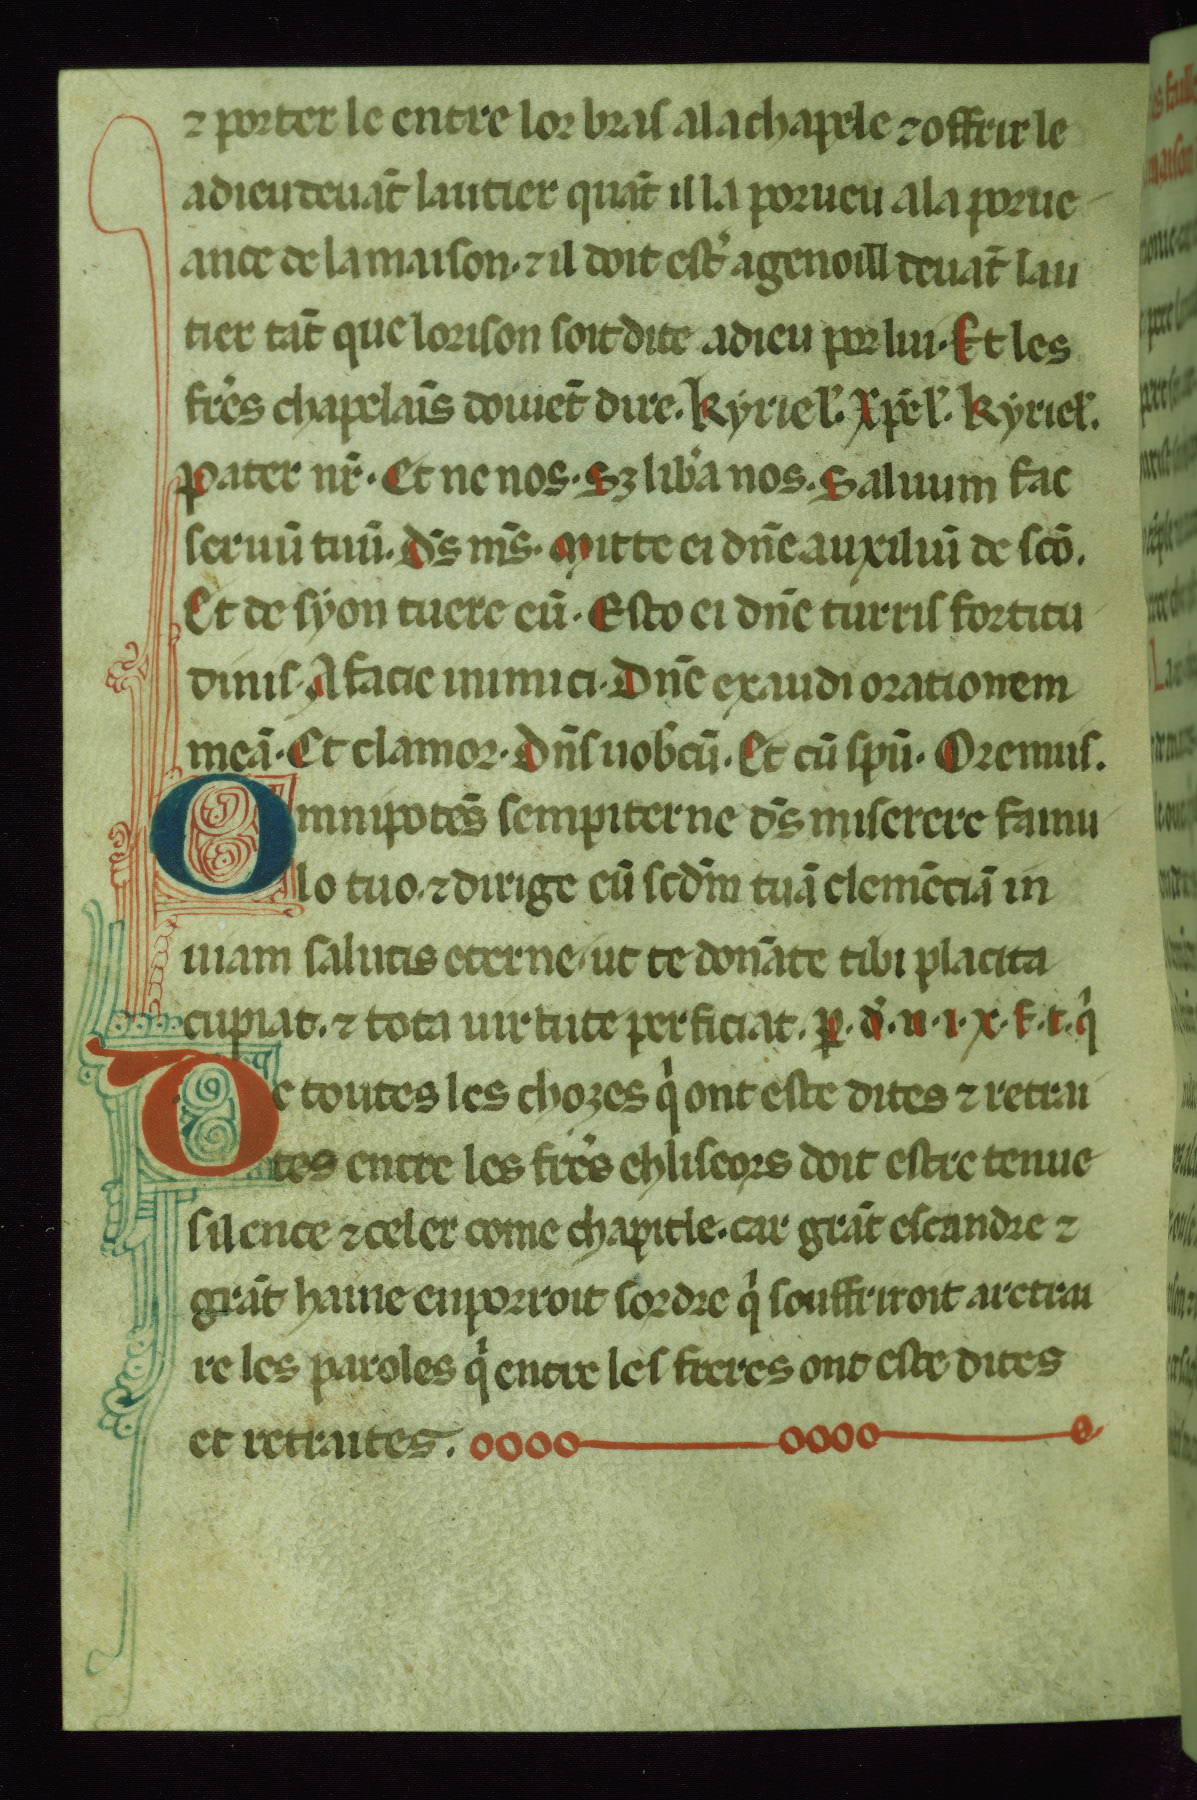 ⁊ porter le entre lor bras ala chapele ⁊ offrir le
adieu deuāt lautier quāt il la porueu ala porue
ance de la maison· ⁊ il doit estr̓ agenoill deuāt lau
tier tāt que lorison soit dite adieu por lui· Et les
frēs chapelaīs doiuēt dire. kyriel̓. Xp̄el̓. kyriel̓.
Pater nr̄· Et ne nos· Sꝫ lib̓a nos. Saluum fac
seruū tuū. Ds̄ ms̄. Mitte ei dn̄e auxiliū de scō.
Et de syon tuere eū· Esto ei dn̄e turris fortitu
dinis· A facie inimici· Dn̄e exaudi orationem
meā· Et clamor· Dn̄s uob̓cū. Et cū spū· Oremus.
Omnipotēs sempiterne ds̄ miserere famu
lo tuo. ⁊ dirige eū scdm̄ tuā clemēciā in
uiam salutis eterne· ut te donāte tibi placita
cupiat. ⁊ tota uirtute perficiat. p̱. d̓. n· i· x· f· t. qͥ
De toutes les chozes qͥ ont este dites ⁊ retrai
tes entre les frēs ehliseors doit estre tenue
silence ⁊ celer come chapitle. car grāt escandre ⁊
grāt haine en porroit sordre qͥ souffriroit a retrai
re les paroles qͥ entre les freres ont este dites
et retraites.